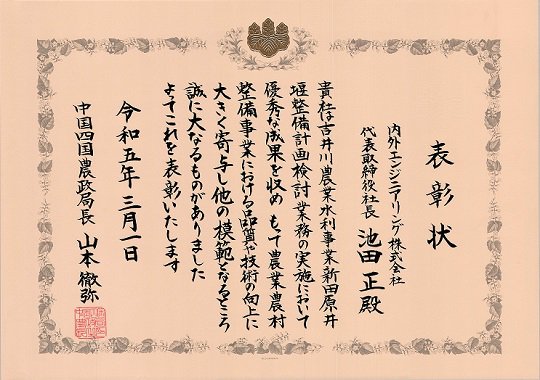 表彰状
内外エンジニアリング株式会社
代表取締役社長 池田正殿
貴社は吉井川農業水利事業新田原井
堰整備計画検討業務の実施において
優秀な成果を収め もって農業農村
整備事業における品質や技術の向上に
大きく寄与し他の模範となるところ
誠に大なるものがありました
よってこれを表彰いたします
令和五年三月一日
中国四国農政局長 山本徹弥